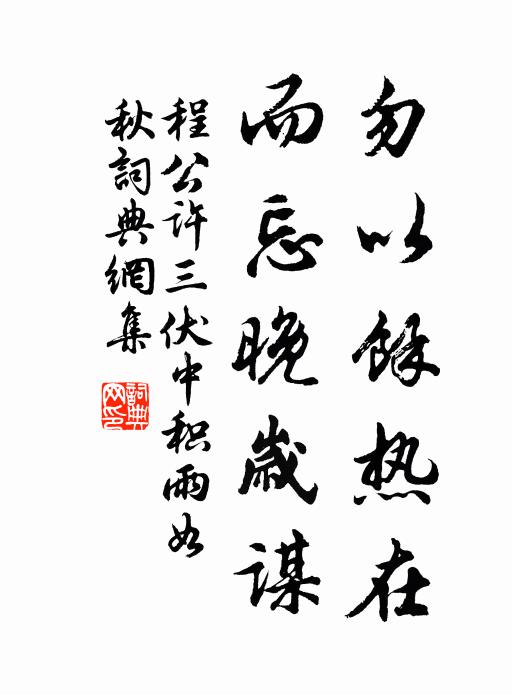 勿以餘热在
而忘晚歲謀
程公许三伏中积雨如
秋詞典網集
詞典
网印